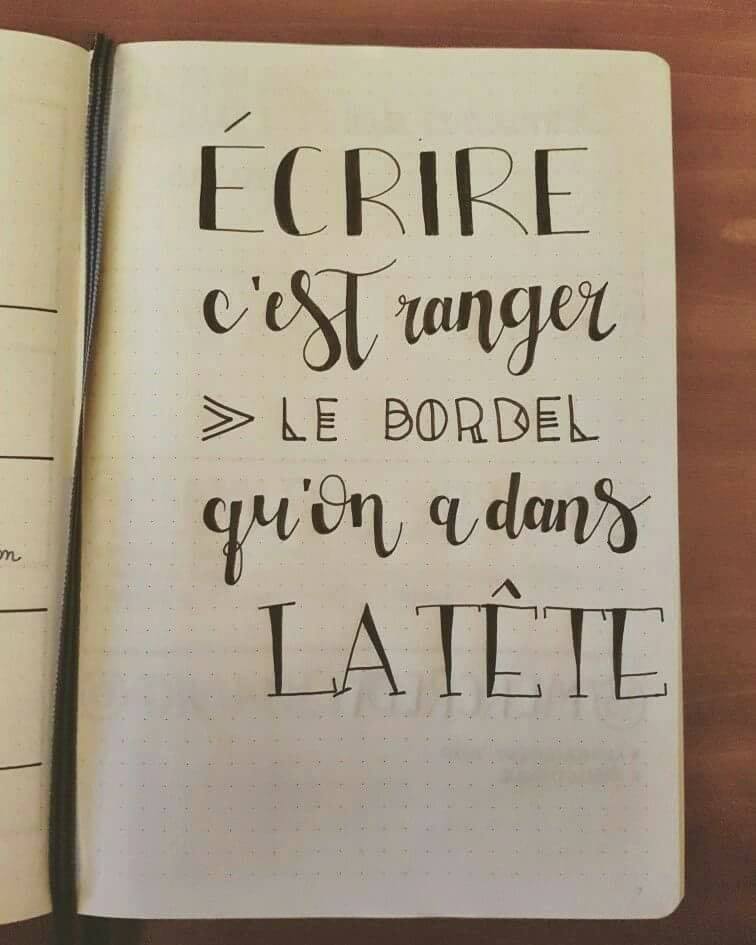 ÉCRIRE
c'est ranger
LE BORDEL
qu'on a dans
LA TÊTE